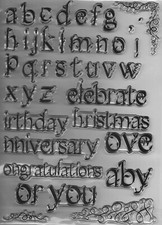 abcdefg
hijklmno
pqrstuvw
xyz elebrate
irthday hristmas
nniversary ove
ongratulations aby
or you